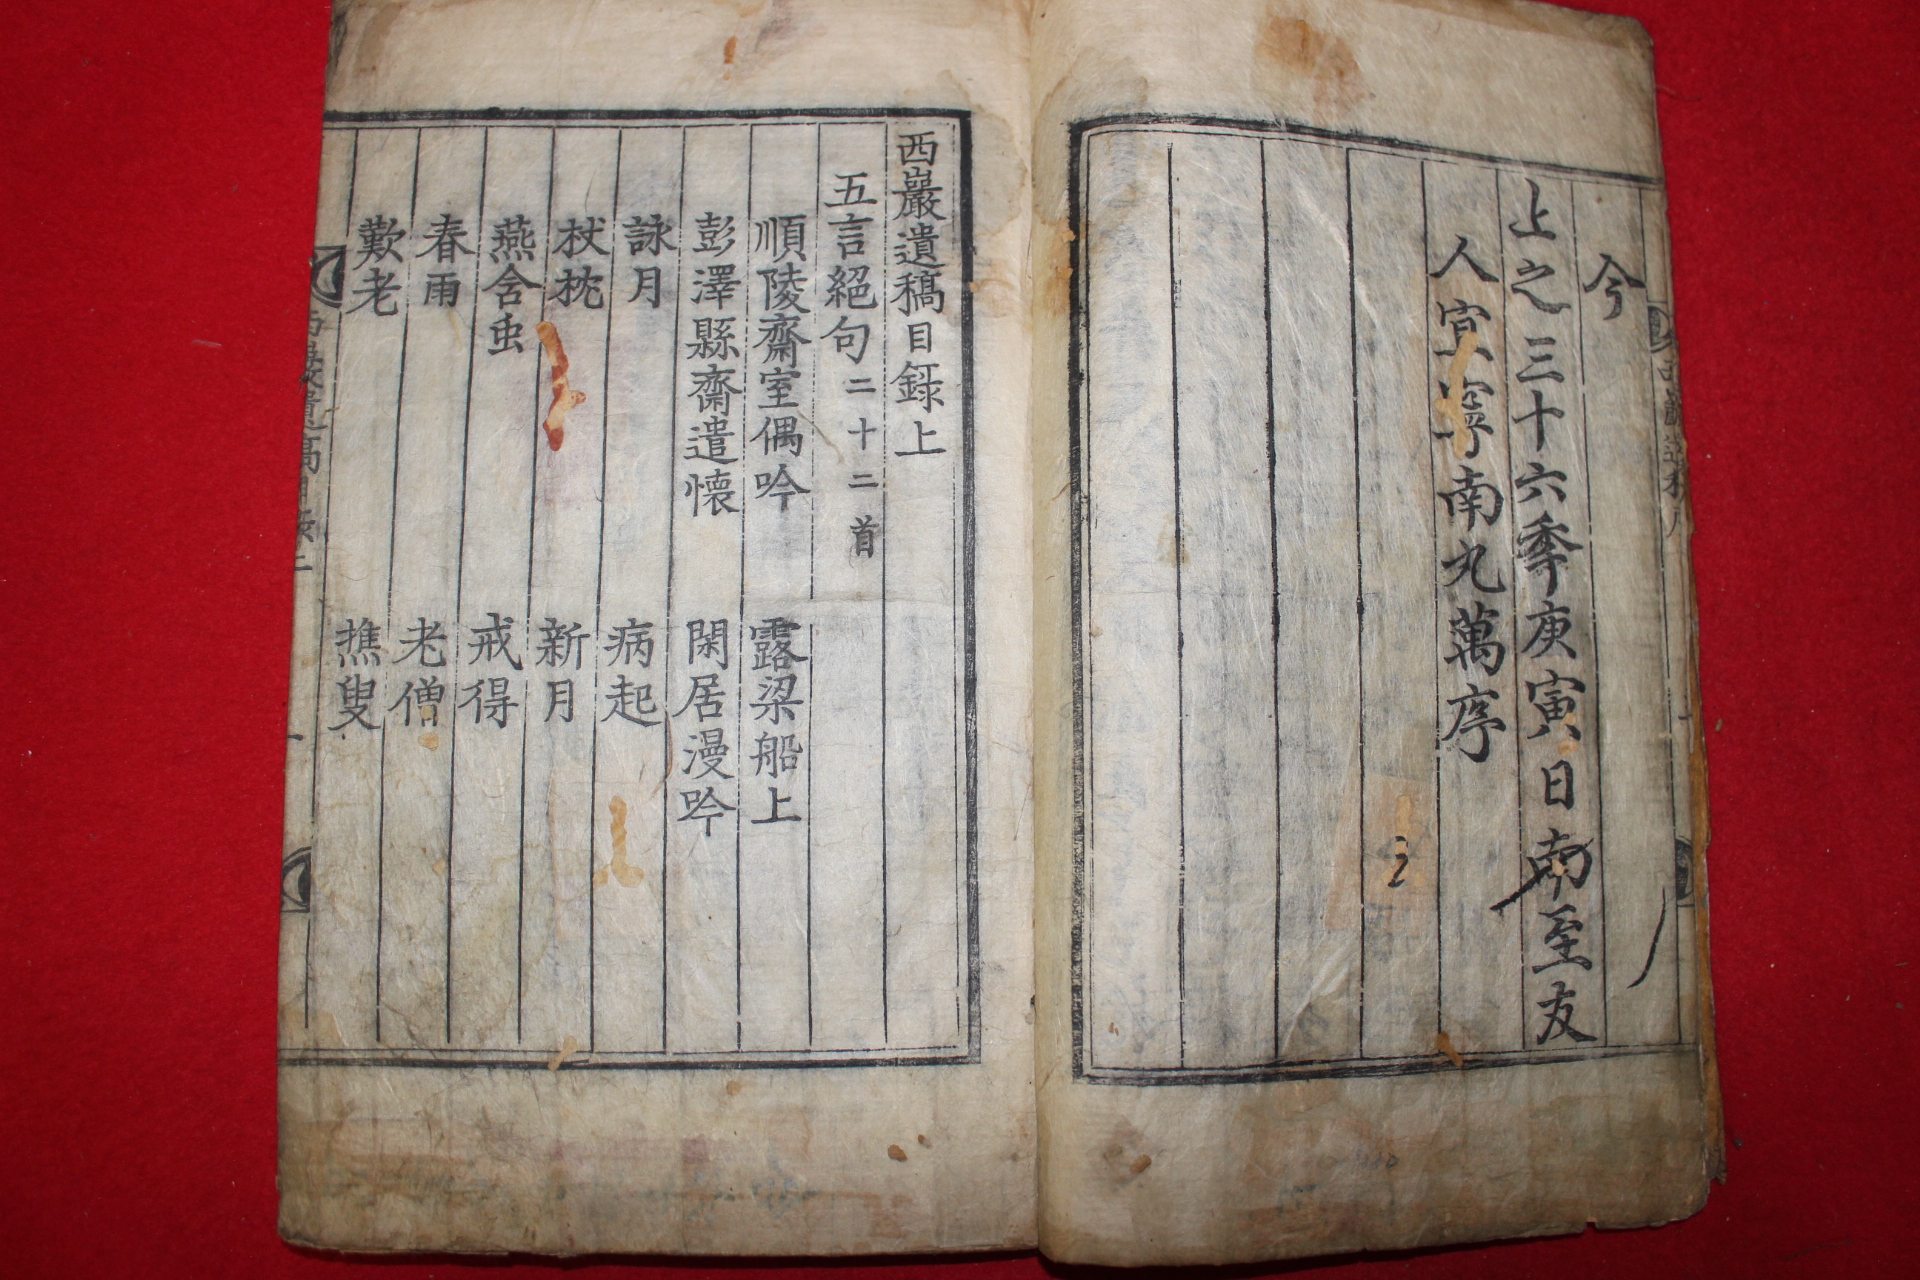 今
上之三十六季庚寅日南至友
人宜寧南九萬序
2
西巖遺稿目錄上
五言絕句二十二首
順陵齋室偶吟 露梁船上
彭澤縣齋遣懷 閑居漫吟
詠月 病起
杖枕 新月
燕舍虫 戒得
春雨 老僧
歎老 樵叟